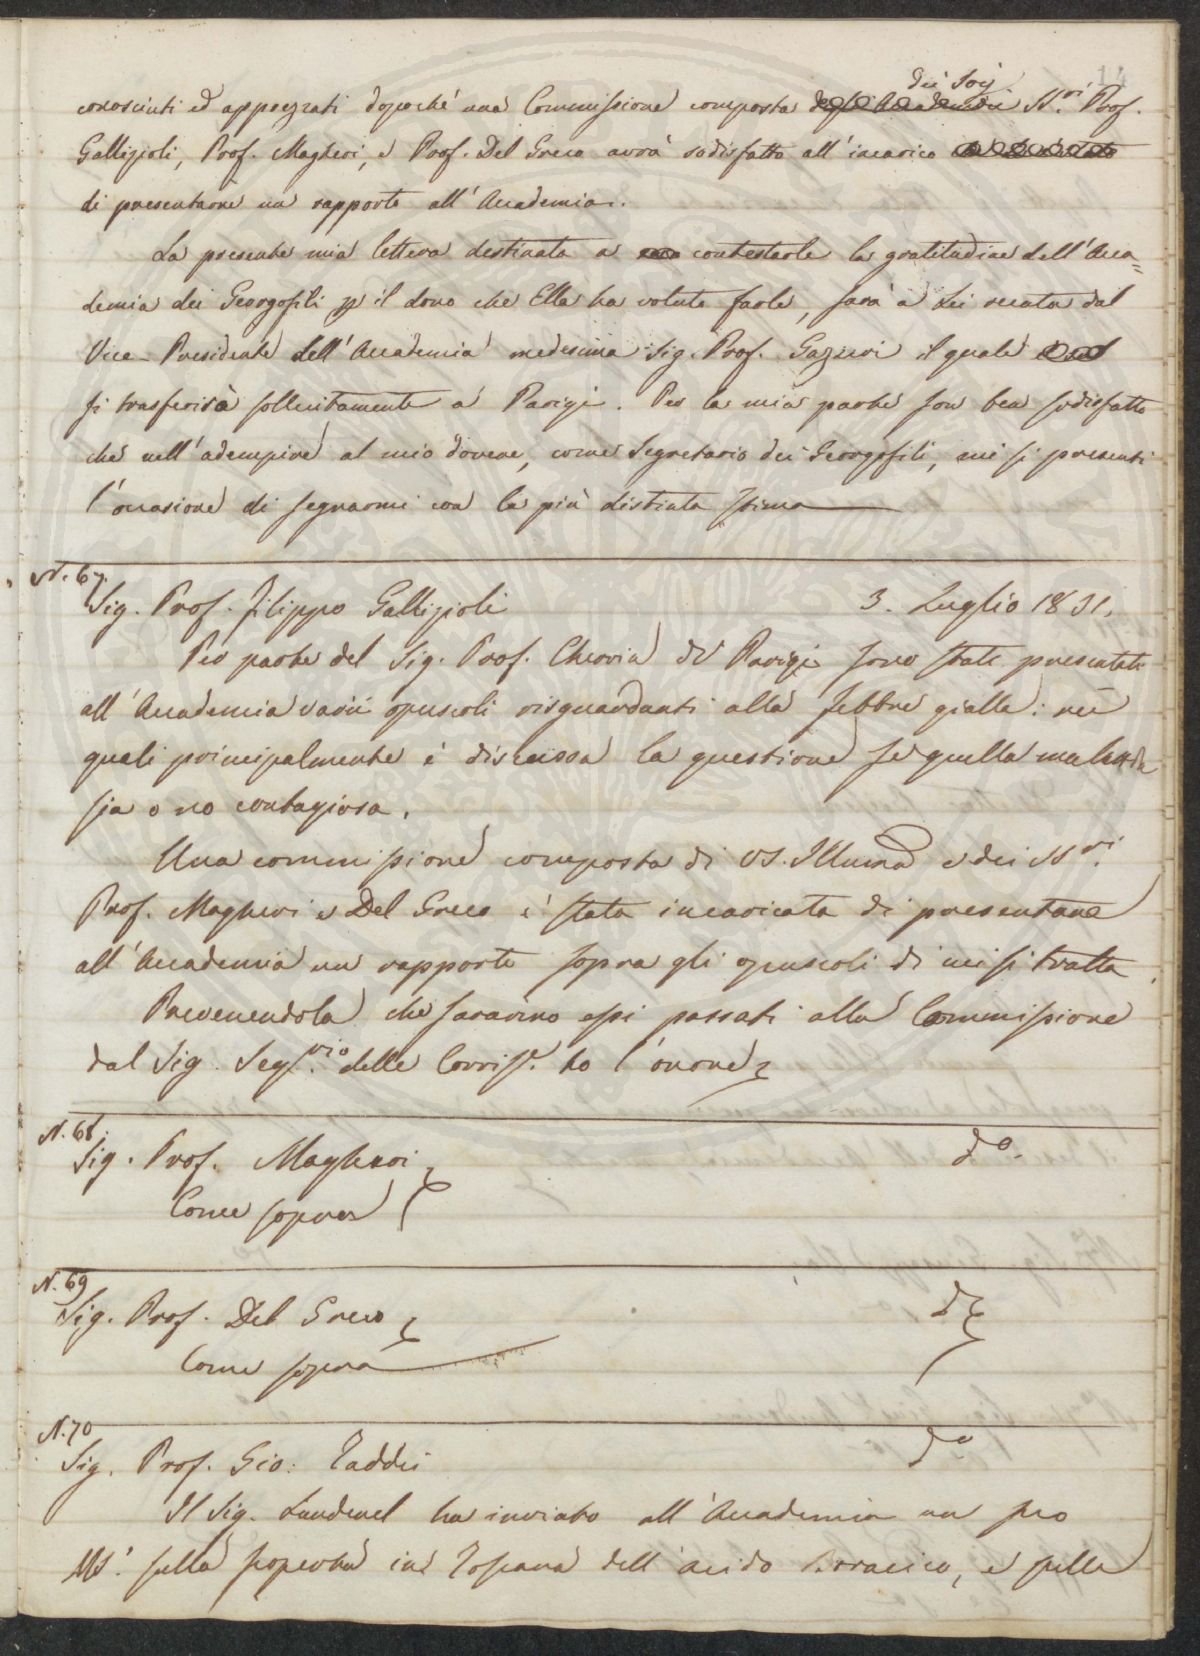 14
dei Socij
conosciuti ed apprezzati dopoché una Commissione composta degli Accademici SS.ri Prof.
Gallizioli, Prof. Magheri, e Prof. Del Greco avrà sodisfatto all'incarico
di presentarne un rapporto all'Accademia.
La presente mia lettera destinata a contestarle la gratitudine dell'Acca=
demia dei Georgofili p il dono che Ella ha voluto farle, sarà a Lei recata dal
Vice-Presidente dell'Accademia medesima Sig. Prof. Gazzeri il quale
si trasferirà sollecitamente a Parigi. Per la mia parte son ben sodisfatto
che nell'adempire al mio dovere, come Segretario dei Georgofili, mi si presenti
l'occasione di segnarmi con la più distinta stima
N. 67.
Sig. Prof. Filippo Gallizioli 3. Luglio 1831.
Per parte del Sig. Prof. Chervin di Parigi sono stati presentati
all'Accademia varii opuscoli risguardanti alla febbre gialla: nei
quali principalmente è discussa la questione se quella malattia
sia o no contagiosa.
Una commissione composta di VS. Illuma e dei SS.ri
Prof. Magheri e Del Greco è stata incaricata di presentare
all'Accademia un rapporto sopra gli opuscoli di cui si tratta
Prevenendola che saranno essi passati alla Commissione
dal Sig. Seg.rio delle Corrisp. ho l'onore
N. 68.
Sig. Prof. Magheri do.
Come sopra
N. 69
Sig. Prof. Del Greco do
Come sopra
N. 70
Sig. Prof. Gio: Taddei do
Il Sig. Larderel ha inviato all'Accademia un suo
MS. sulla scoperta in Toscana dell'acido Boracico, e sulla